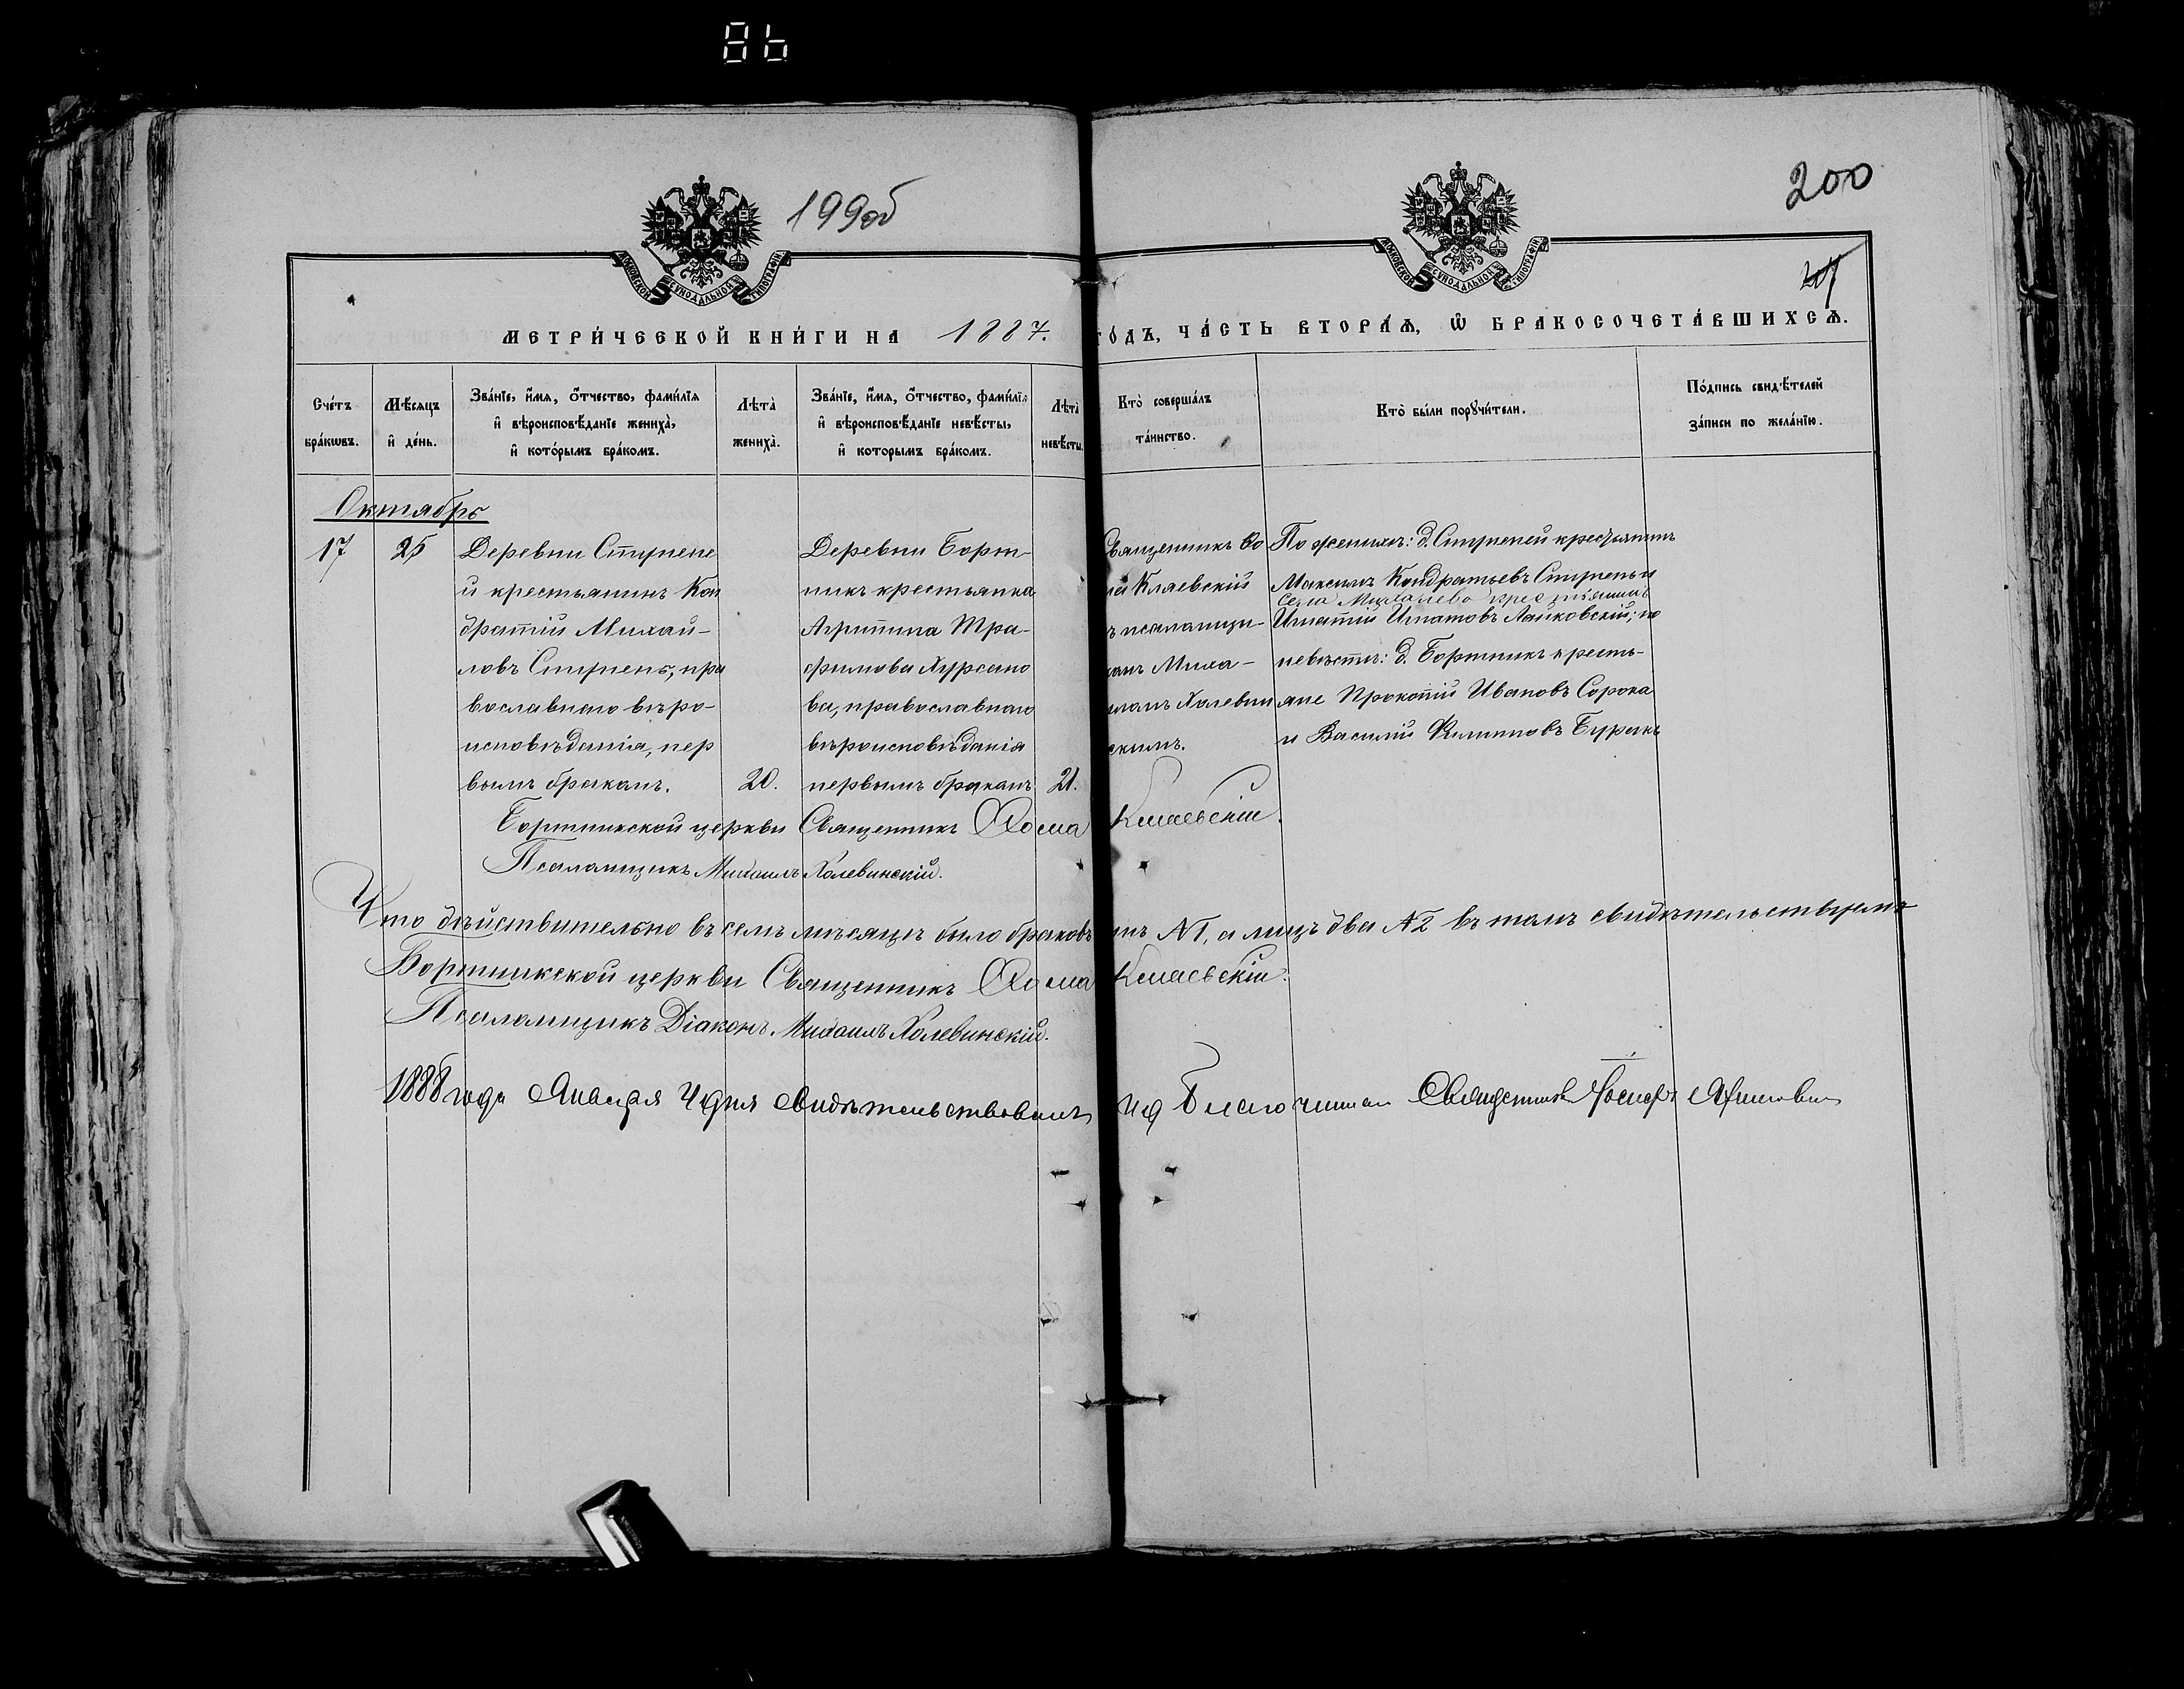 86
199об
200
201
МОСКОВСКОЙ СУНОДАЛЬНОЙ ТИПОГРАФІИ
МОСКОВСКОЙ СУНОДАЛЬНОЙ ТИПОГРАФІИ
МЕТРИ́ЧЕСКОЙ КНИ́ГИ НА 1887. ГО́ДЪ, ЧА́СТЬ ВТОРА́Ѧ, Ѡ҆ БРАКОСОЧЕТА́ВШИХСѦ.
Сче́тъ
бра́кѡвъ.
Мѣ́сѧцъ
и҆ де́нь.
Зва́нїе, и҆́мѧ, ѻ҆́тчество, фами́лїѧ
и҆ вѣроисповѣ́данїе жениха̀,
и҆ кото́рымъ бра́комъ.
Лѣ́та̀
жениха̀.
Зва́нїе, и҆́мѧ, ѻ҆́тчество, фами́лїѧ
и҆ вѣроисповѣ́данїе невѣ́сты,
и҆ кото́рымъ бра́комъ.
Лѣ́та̀
невѣ́сты.
Кто̀ соверша́лъ
та́инство.
Кто̀ бы́ли порꙋчи́тели.
По́дпись свидѣ́телей
за́писи по жела́нїю.
Октябрь
17
25
Деревни Ступене
й крестьянинъ Кон
дратій Михай-
ловъ Ступень, пра
вославнаго вѣро-
исповѣданія, пер
вымъ бракомъ.
20.
Деревни Борт-
никъ крестьянка
Агрипина Тро-
фимова Хурсано
ва, православнаго
вѣроисповѣданія
первымъ бракомъ
21.
Священникъ Ѳо
ма Кляевскій
ъ псаломщи-
комъ Миха-
иломъ Холевин
скимъ.
По женихѣ: д. Ступеней крестьянинъ
Максимъ Кондратьевъ Ступень и
Села Михалева крестьянинъ
Игнатій Игнатовъ Лайковскій; по
невѣстѣ: д. Бортникъ кресть-
яне Прокопій Ивановъ Сорока
и Василій Филиповъ Буракъ
Бортникской церкви Священникъ Ѳома Кляевскій.
Псаломщикъ Михаилъ Холевинскій.
Что дѣйствительно въ семъ мѣсяцѣ было браковъ №1, а лицъ два №2 въ томъ свидѣтельствуемъ
Бортникской церкви Священникъ Ѳома Кляевскій.
Псаломщикъ Діаконъ. Михаилъ Холевинскій.
1888 года Января 4 дня свидѣтельствовалъ Благочиннаго Священникъ Іосифъ